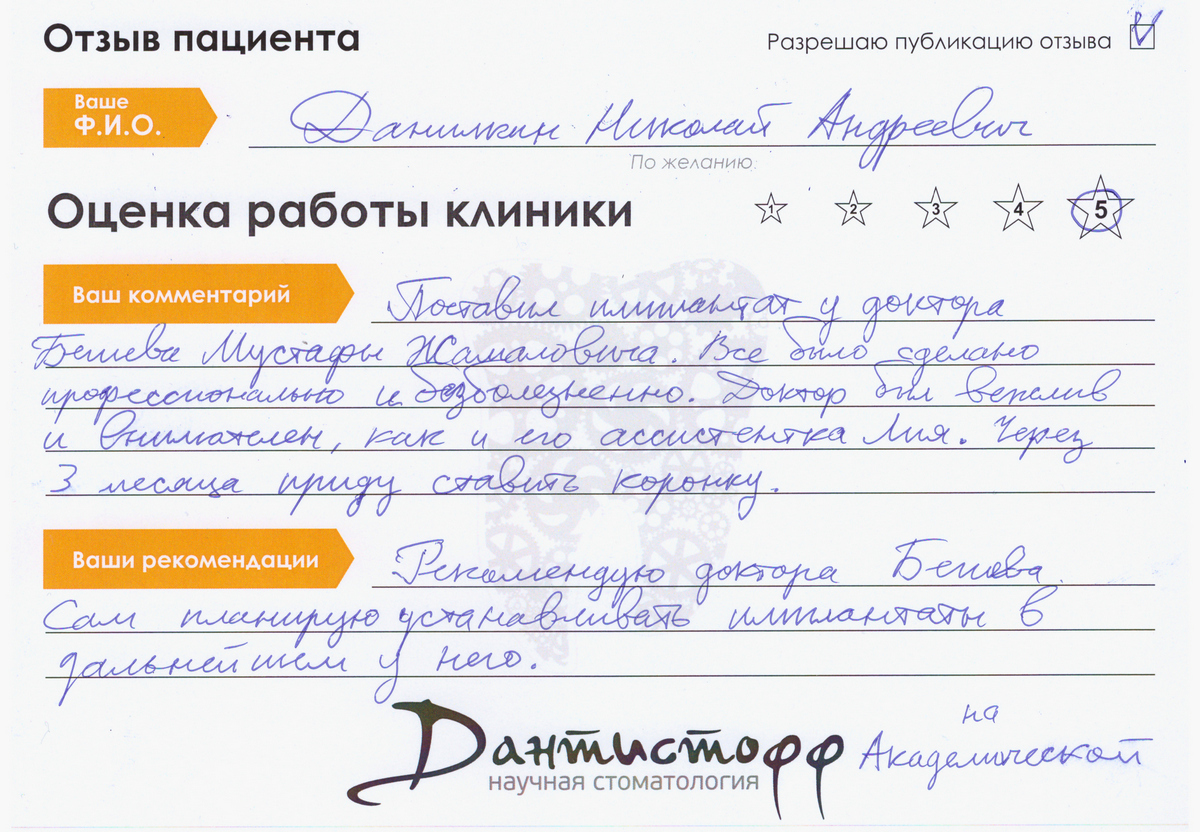 Отзыв пациента
Разрешаю публикацию отзыва
Ваше
Ф.И.О.
Данилкин Николай Андреевич
По желанию
Оценка работы клиники
1 2 3 4 5
Ваш комментарий
Поставил имплантат у доктора
Бешева Мустафы Жамаловича. Все было сделано
профессионально и безболезненно. Доктор был вежлив
и внимателен, как и его ассистентка Лия. Через
3 месяца приду ставить коронку.
Ваши рекомендации
Рекомендую доктора Бешева.
Сам планирую устанавливать имплантаты в
дальнейшем у него.
Дантистофф
научная стоматология
на
Академической